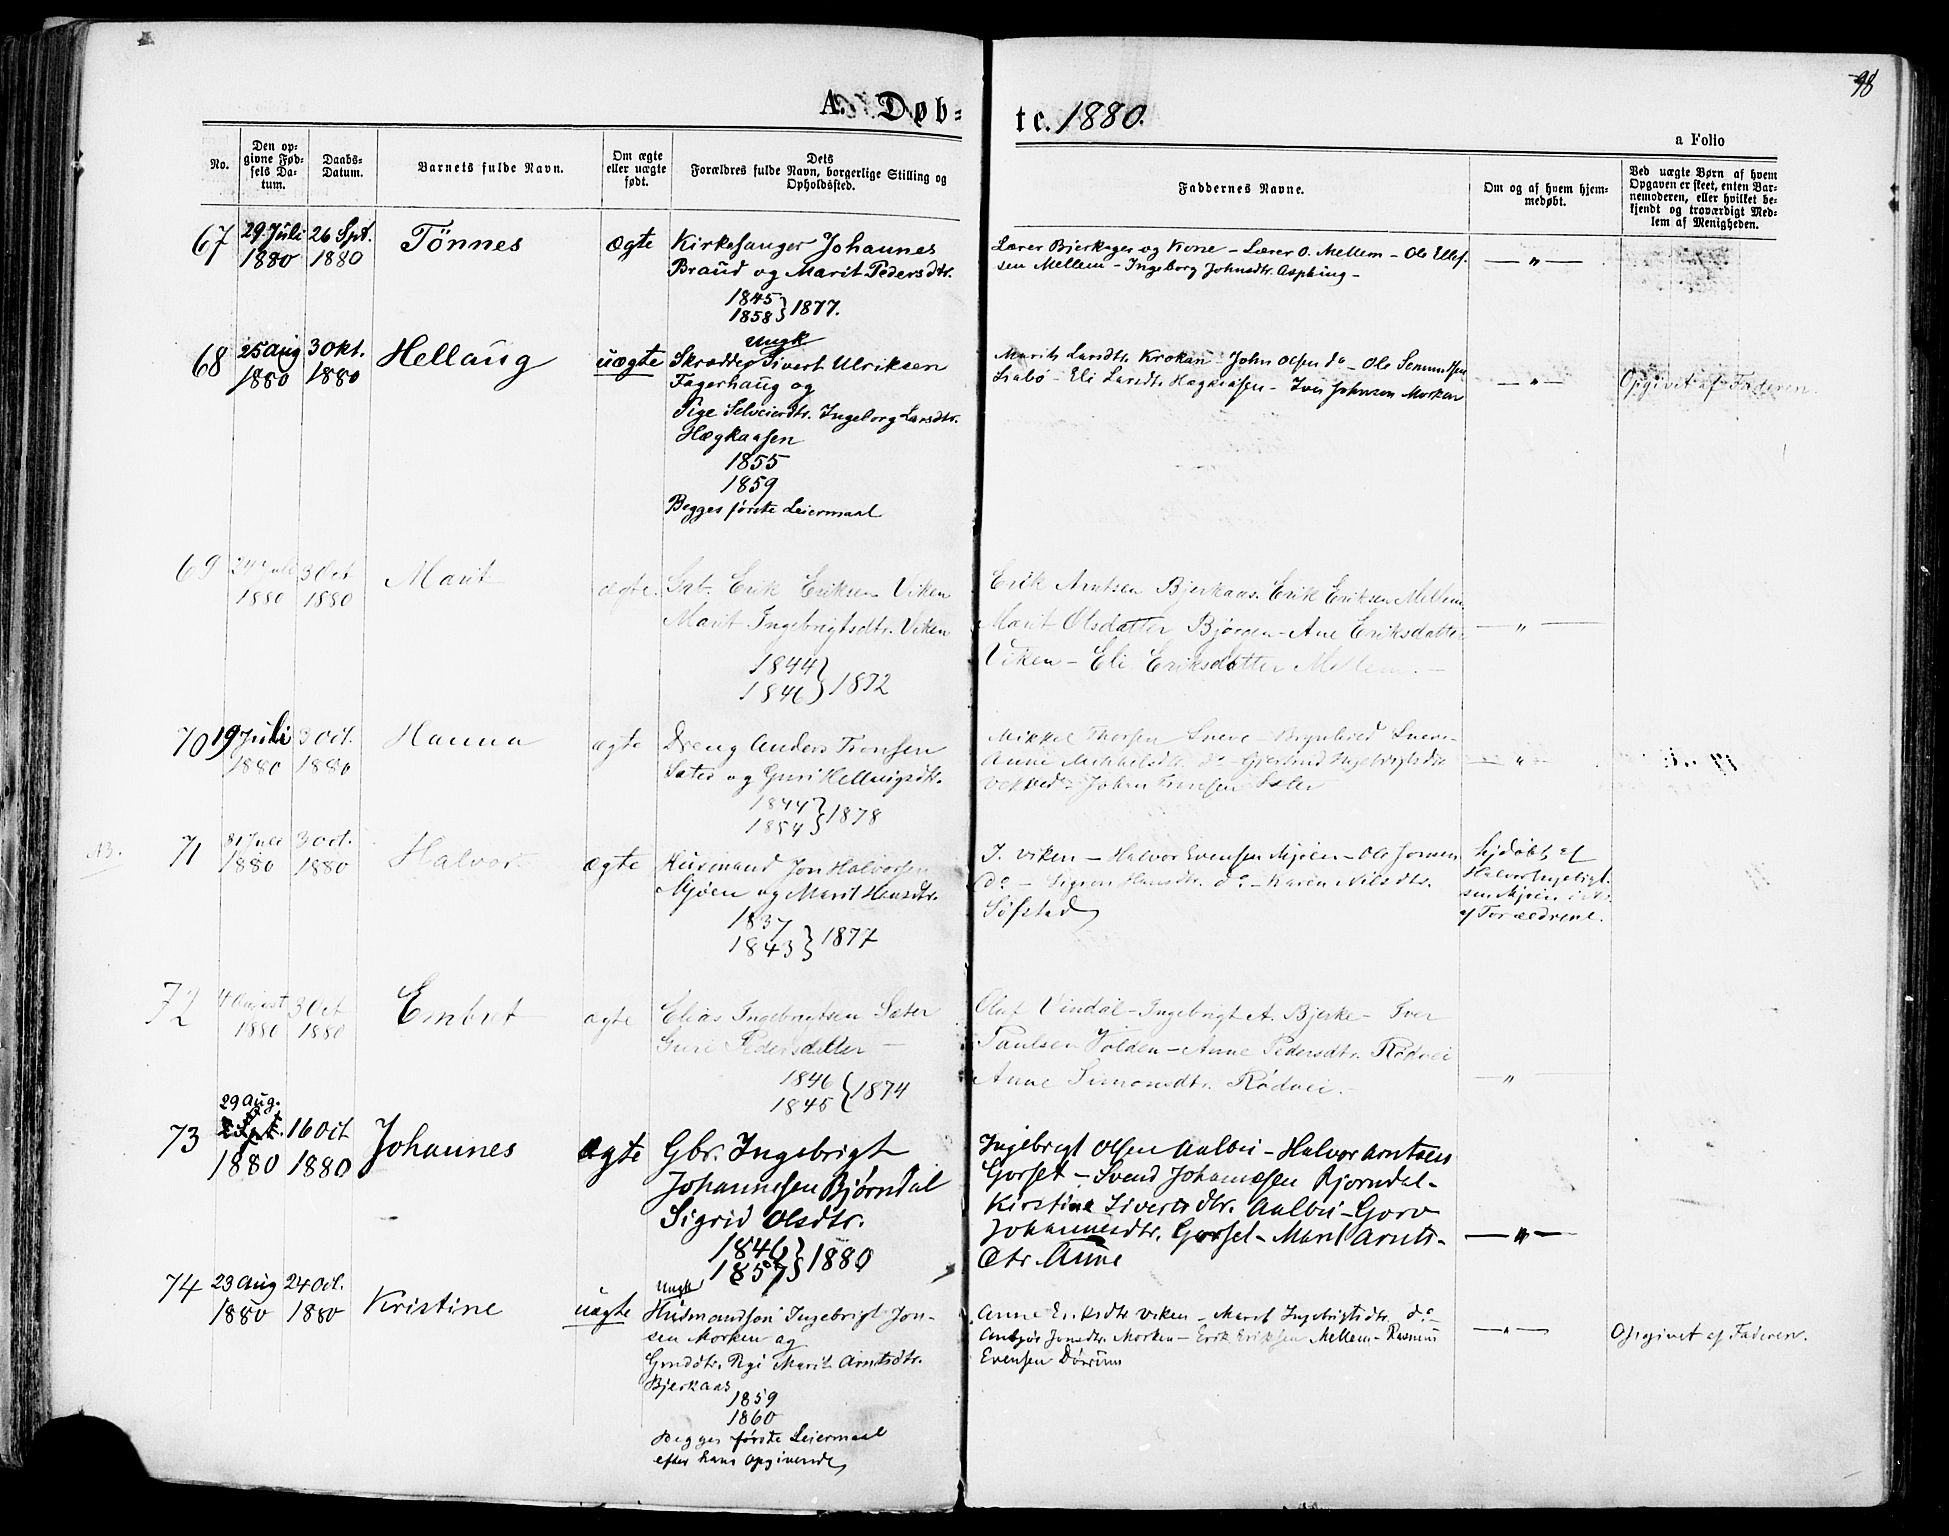 98
A. Døb-
te. 1880.
a Folio
No.
Den op-
givne Fød-
sels Da-
tum.
Daabs-
Datum.
Barnets fulde Navn.
Om ægte
eller uægte
født.
Dets
Forældres fulde Navn, borgerlige Stilling og
Opholdssted.
Faddernes Navne.
Om og af hvem hjem-
medøbt.
Ved uægte Børn af hvem
Opgaven er skeet, enten Bar-
nemoderen, eller hvilket be-
kjendt og troværdigt Med-
lem af Menigheden.
67
29 Juli
1880
26 Spt.
1880
Tönnes
ægte
Kirkesanger Johannes
Braud og Marit Pedersdtr.
1845
1858 } 1877.
Lærer Bjerkager og Kone - Lærer O. Mellem - Ole Ellef-
sen Mellem - Ingeborg Johnsdtr.
— „ —
68
25 Aug
1880
3 Okt.
1880
Hellaug
uægte
Ungk
Skrædder Sivert Ulriksen
Fagerhaug og
Pige Selveierdtr. Ingeborg Larsdtr.
Hægkaasen
1855
1859
Begges første Leiermaal
Marit Larsdtr Krokan - John Olsen do - Ole
Eli Larsdtr Hægkaasen - Iver Johnsen Morken
— „ —
Opgivet af Faderen.
69
24 Juli
1880
3 Oct
1880
Marit
ægte.
Erik Eriksen Viken
Marit Ingebrigtsdtr. Viken
1844
1846 } 1872
Erik Arntsen Bjerkaas. Erik Eriksen Mellem,
Marit Olsdatter Bjørgen - Ane Eriksdatter
Viken - Eli Eriksdatter Mellem. -
— „ —
70
19 Juli
1880
3 Oct.
1880
Hanna
ægte
Dreng Anders Tronsen
Sæter og Guri Hellaugsdtr.
1844
1854 } 1878
Mikkel Thorsen
Anne Mikkelsdtr. do
Johan Tronsen Sæter
— „ —
71
31 Juli
1880
3 Oct.
1880
Halvor
ægte
Husmand Jon Halvorsen
Mjøen og Marit Hansdtr.
1837
1843 } 1877
J. Viken - Halvor Evensen Mjøen - Ole Jonsen
do - Sigrou Hansdtr. do - Karen Nilsdtr.
Söfstad
Hjdøbt af
Halvor
af Forældrene.
72
4 August
1880
3 Oct
1880
Embret
ægte
Elias Ingebrigtsen Sæter
Guri Pedersdatter -
1846
1845 } 1874
Oluf Vindal - Ingebrigt A. Bjerke - Iver
Paulsen Volden - Anne Pedersdtr. Rödvei
Anne Simonsdtr. Rödvei. -
— „ —
73
29 Aug.
1880
16 Oct
1880
Johannes
ægte
Gbr. Ingebrigt
Johannesen Bjørndal
Sigrid Olsdtr.
1846
1857 } 1880
Ingebrigt Olsen Aalbu - Halvor Arntsen
Gorset - Svend Johannesen Bjørndal -
Kirstine Sivertsdtr. Aalbu - Goro
Johannesdtr. Gorset - Marit Arnts-
dtr. Aune
— „ —
74
23 Aug
1880
24 Oct.
1880
Kristine
uægte
Ungk
Husmandssøn Ingebrigt Jon-
sen Morken og
Gmddtr. Pige Marit Arntsdtr.
Bjerkaas
1859
1860
Begges første Leiermaal
efter hans opgivende
Anne Eriksdtr Viken - Marit Ingebrigtsdtr. do -
Jonsdtr. Morken - Erik Eriksen Mellem - Rasmus
Evensen
— „ —
Opgivet af Faderen.